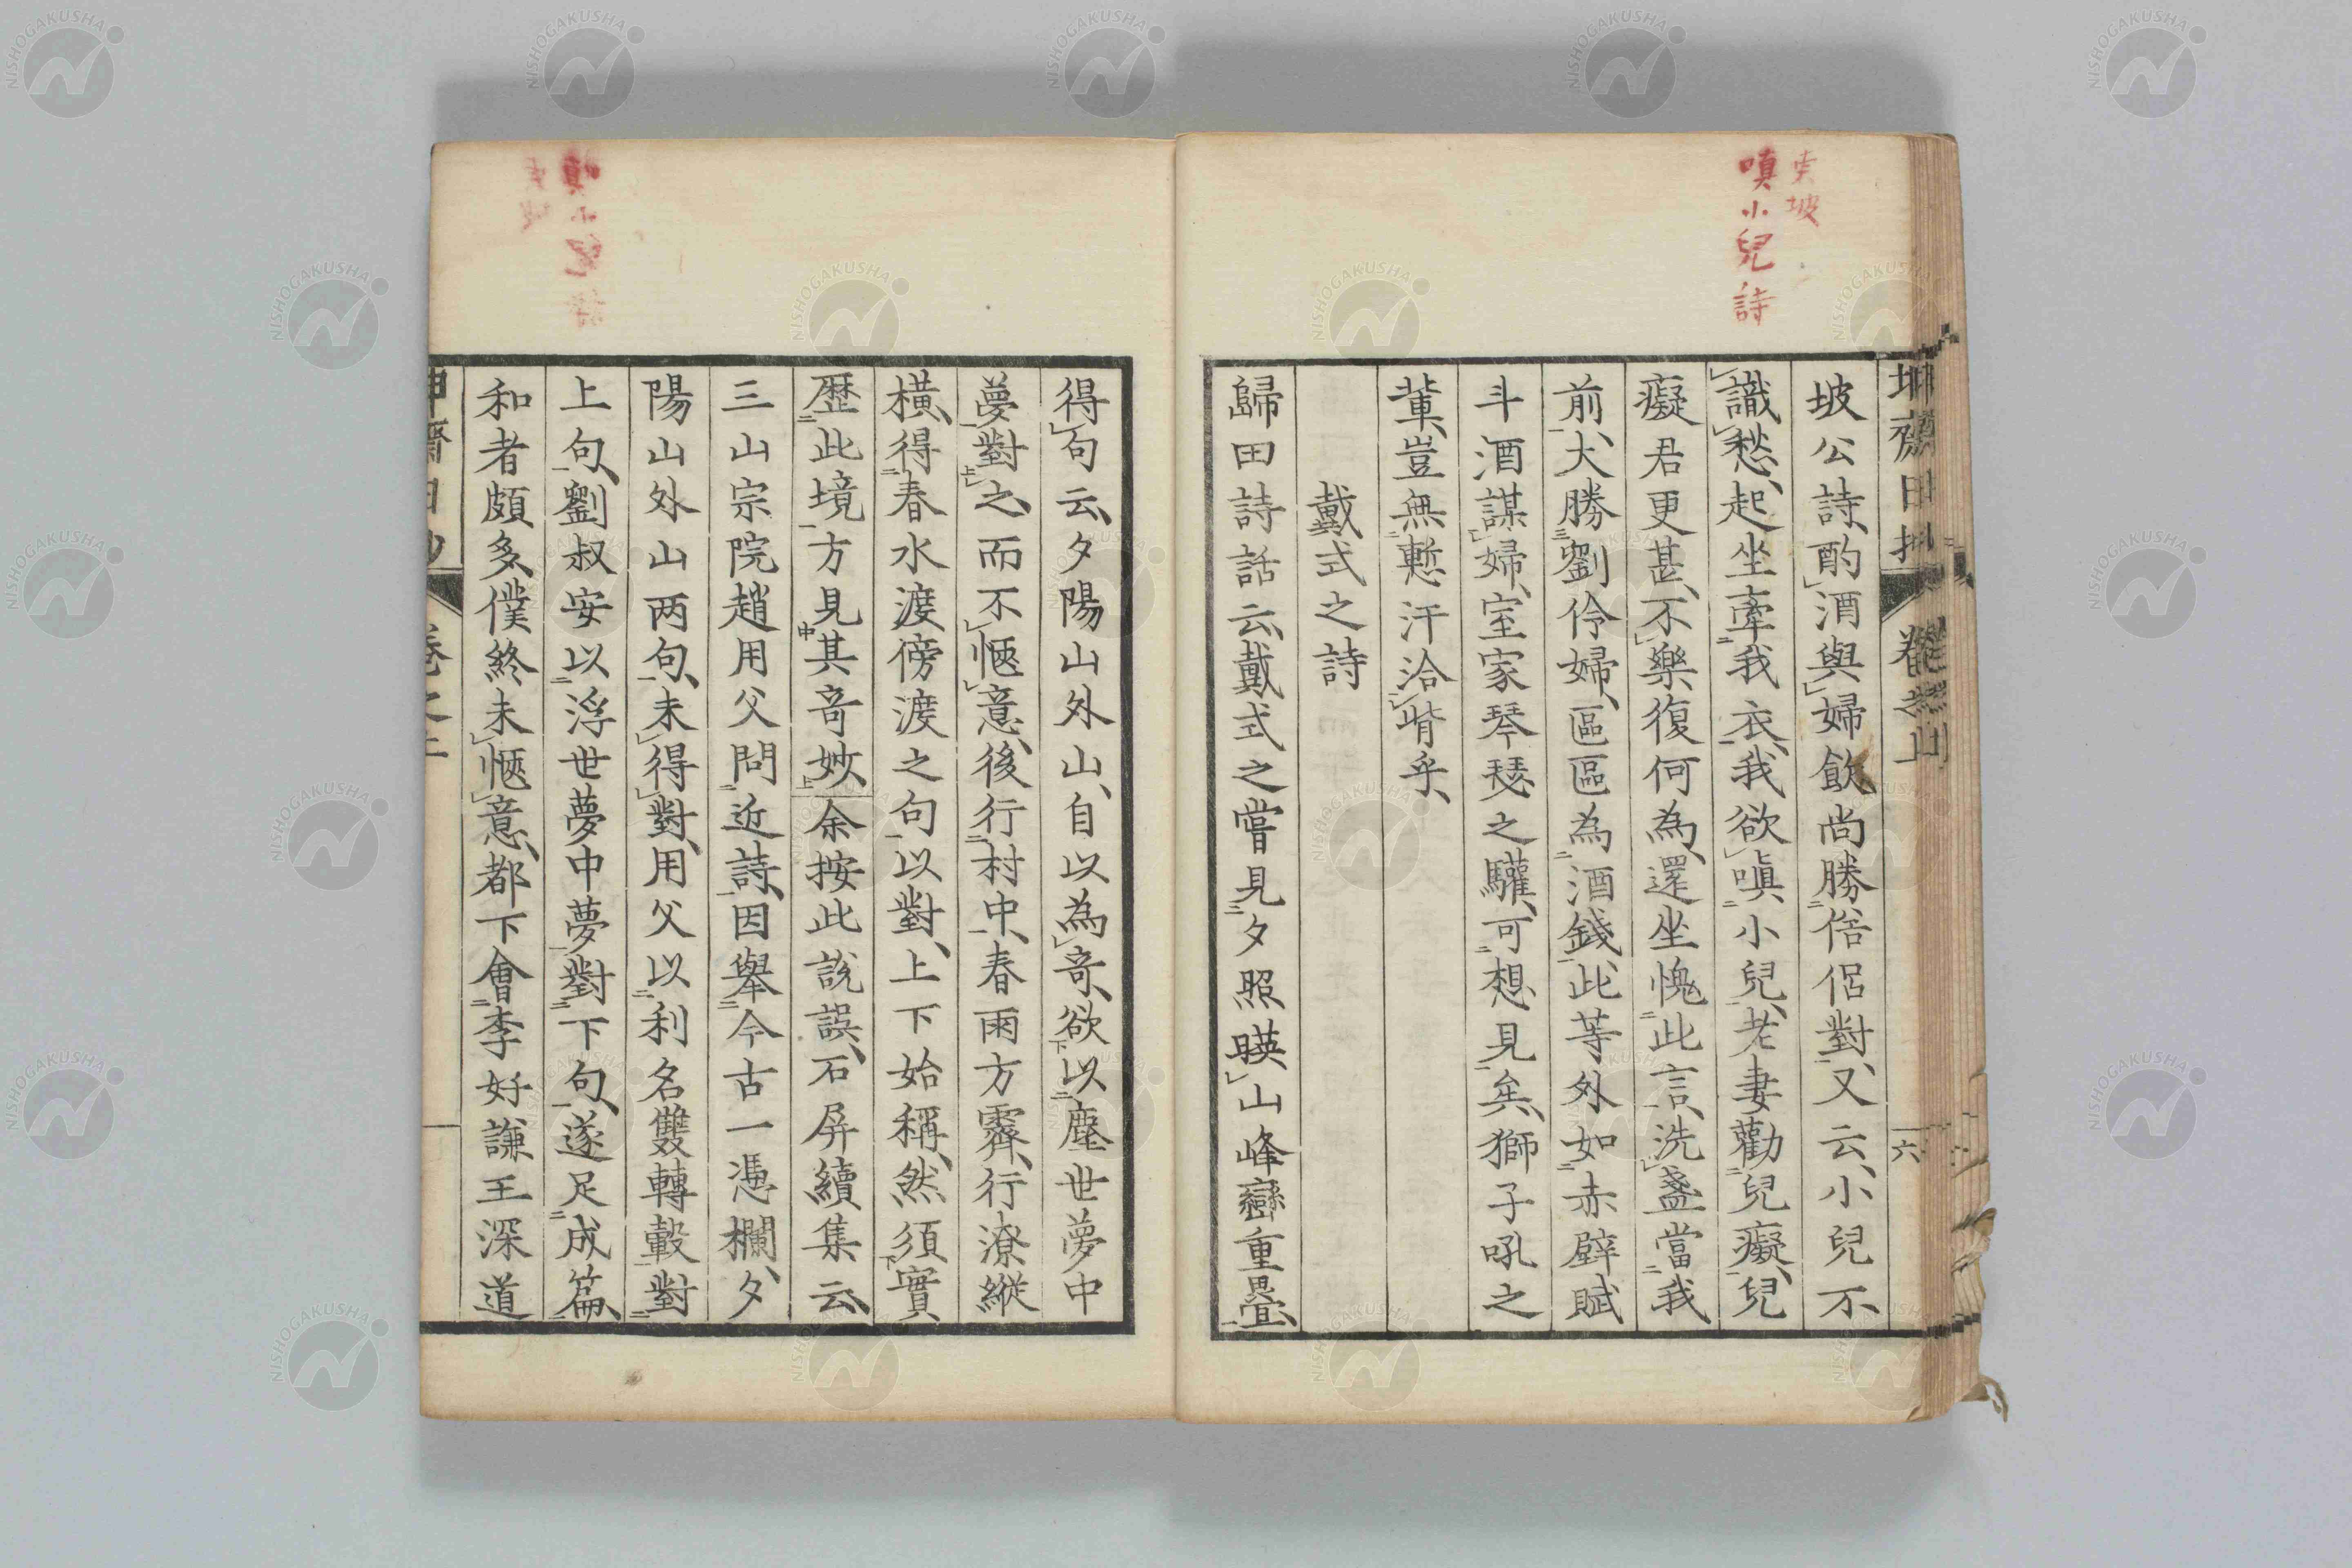 東坡
嗔小兒詩
坤齋日抄 卷之上 六
坡公詩、酌酒與婦飮尚勝俗侶對、又云、小兒不
識愁、起坐牽我衣、我欲嗔小兒、老妻勸兒癡、兒
癡君更甚、不樂復何為、還坐愧此言、洗盞當我
前、大勝劉伶婦、區區為酒錢、此等外如赤壁賦
斗酒謀婦、室家琴瑟之驩、可想見矣、獅子吼之
輩、豈無慙汗洽背乎、
戴式之詩
歸田詩話云、戴式之嘗見夕照映山峰巒重疊、
得句云、夕陽山外山、自以為奇、欲以塵世夢中
夢對之、而不愜意、後行村中、春雨方霽、行潦縱
橫、得春水渡傍渡之句以對、上下始稱、然須實
歷此境方見其奇妙、余按此說誤、石屏續集云、
三山宗院趙用父問近詩、因舉今古一憑欄、夕
陽山外山两句、未得對、用父以利名雙轉轂對
上句、劉叔安以浮世夢中夢對下句、遂足成篇、
和者頗多、僕終未愜意、都下會李好謙王深道